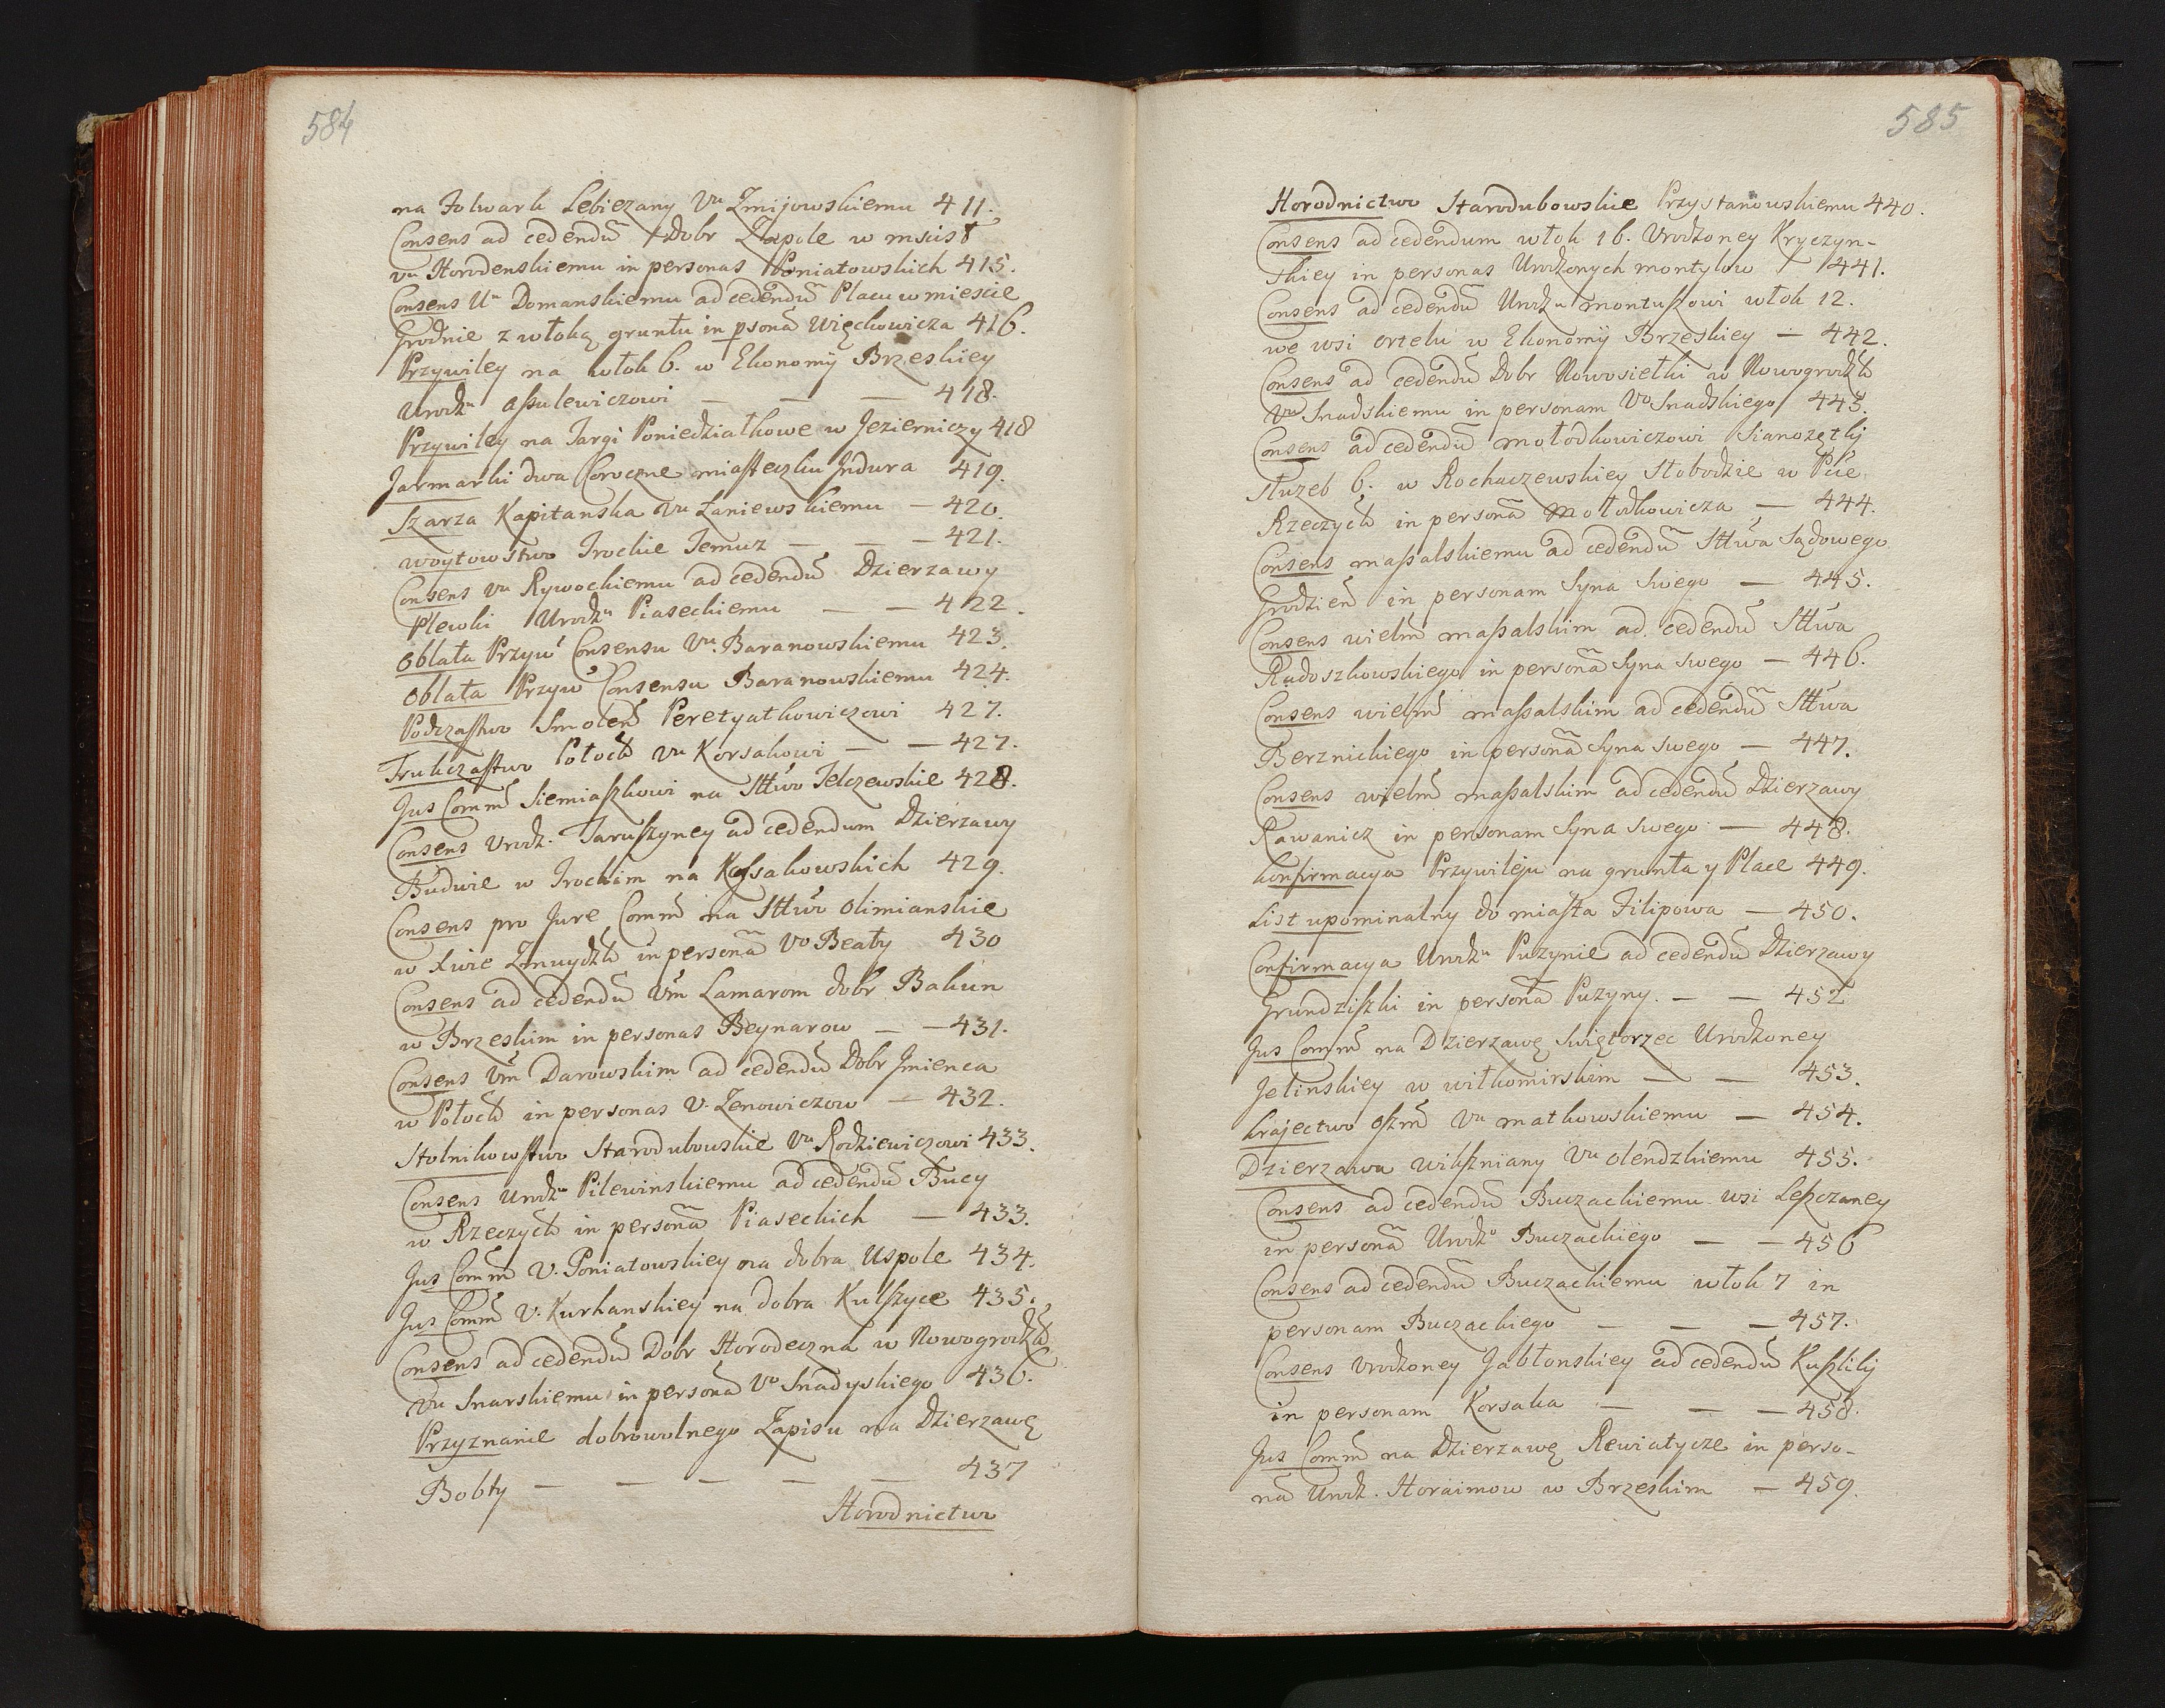 584
na Folwark Lebiezany Vu Zmijowskiemu 411.
Consens ad cedendũ Dobr Zapole w mścisł
vu Horodenskiemu in personas Poniatowskich 415.
Consens Uu Domanskiemu ad cedendũ Placu w mieście
Grodnie z włoką gruntu in psonã Więckowicza 416.
Przywiley na włok 6. w Ekonomÿ Brzeskiey
Urodzu Assulewiczowi — — — 418.
Przywiley na Targi Poniedziałkowe w Jezierniczy 418
Jarmarki dwa Coroczne miasteczku Jndura 419.
Szarza Kapitanska Vu Łaniewskiemu — 420.
woytowstwo Trockie Jemuz — — — 421.
Consens vu Rywockiemu ad cedendũ Dzierzawy
Plewki Urodzu Piaseckiemu — — 422.
Oblata Przyw Consensu Vu. Baranowskiemu 423.
Oblata Przyw Consensu Baranowskiemu 424.
Podczastwo Smoleń Peretyatkowiczowi 427.
Trukczastwo Połock Vu Korsakowi — — 427.
Jus Comm̃ Siemiaszkowi na Sttwo Telczewskie 428.
Consens Vrodz. Taruszyney ad cedendum Dzierzawy
Budwie w Trockim na Kossakowskich 429.
Consens pro Jure Comm̃ na Sttwo Olimianskie
w Xwie Zmuydzk in personã Vo Beaty 430
Consens ad cedendũ Vm̃ Lamarom dobr Bakun
w Brzeskim in personas Beynarow — — 431.
Consens Vm̃ Darowskim ad cedendũ Dobr Jmienca
w Połock in personas V. Zenowiczow — 432.
Stolnikowstwo Starodubowskie Vu Rodziewiczowi 433.
Consens Urodzu Pilewinskiemu ad cedendũ Bucy
w Rzeczyck in personã Piaseckich — 433.
Jus Comm̃ V. Poniatowskiey na dobra Uspole 434.
Jus Comm̃ V. Kurhanskiey na dobra Kulszyce 435.
Consens ad cedendũ Dobr Horodeczna w Nowogrodzk
Vu Snarskiemu in personã Vo Snadyskiego 436.
Przyznanie dobrowolnego Zapisu na Dzierzawę
Bobty — — — — — 437
Horodnictwo
585
Horodnictwo Starodubowskie Przystanowskiemu 440.
Consens ad cedendum włok 16. Vrodzoney Kryczyn-
skiey in personas Urodzonych montyłow 441.
Consens ad cedendũ Urodzu montuszowi włok 12.
we wsi Ortelu w Ekonomÿ Brzeskiey — 442.
Consens ad cedendũ Dobr Nowosiełki w Nowogrodzk
Vu Snadskiemu in personam Vo Snadskiego 443.
Consens ad cedendũ mołodkowiczowi Sianozętÿ
Służeb 6. w Rochaczewskiey Słobodzie w Pcie
Rzeczyck in personã Mołodkowicza — 444.
Consens massalskiemu ad cedendũ Sttwa Sądowego
Grodzień in personam Syna Swego — 445.
Consens wielm̃ massalskim ad cedendũ Sttwa
Radoszkowskiego in personã Syna swego — 446.
Consens wielm̃ massalskim ad cedendũ Sttwa
Berznickiego in personã Syna swego — 447.
Consens wielm̃ massalskim ad cedendũ Dzierzawy
Rawanicz in personam Syna swego — 448.
Konfirmacya Przywileju na grunta y Place 449.
List upominalny do miasta Filipowa — 450.
Confirmacya Urodzu Puzynie ad cedendũ Dzierzawy
Grundziszki in personã Puzyny. — — 452
Jus Comm̃ na Dzierzawę Swiętorzec Urodzoney
Jelinskiey w wiłkomirskim — — 453.
Krajectwo Oszm̃ Vu matkowskiemu — 454.
Dzierzawa wikszniany Vu Olendzkiemu 455.
Consens ad cedendũ Buczackiemu wsi Leszczaney
in personã Urodzo Buczackiego — — 456
Consens ad cedendũ Buczackiemu włok 7 in
personam Buczackiego — — — 457.
Consens Vrodzoney Jabłonskiey ad cedendũ Kuszlikÿ
in personam Korsaka — — — 458.
Jus Comm̃ na Dzierzawę Rewiatycze in perso-
nã Urodz. Horaimow w Brzeskim — 459.